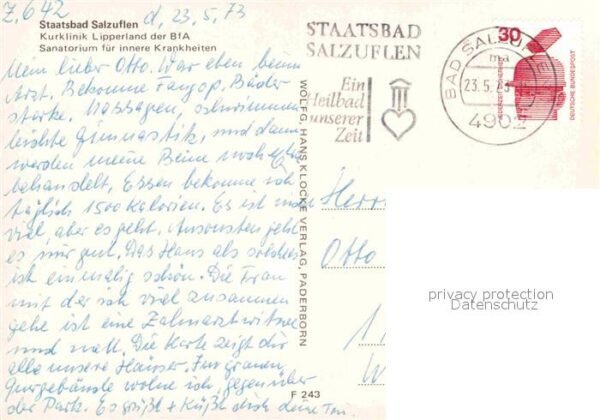 Z. 642
d, 23.5.73
Staatsbad Salzuflen
Kurklinik Lipperland der BfA
Sanatorium für innere Krankheiten
Mein lieber Otto. War eben beim
Arzt. Bekomme Fangop, Bäder
starke, Massagen, schwimmen
leichte Gymnastik, und dann
werden meine Beine noch
behandelt, Essen bekomme ich
täglich 1500 Kalorien. Es ist nicht
viel aber es geht. Ansonsten geht
es mir gut. Das Haus als solches
ist einmalig schön. Die Frau
mit der ich viel zusammen
gehe ist eine Zahnarztwitwe
und nett. Die Karte zeigt dir
alle unsere Häuser. Im grauen
Quergebäude wohne ich, gegenüber
der Park. Es grüßt + küßt dich deine
WOLFG. HANS KLOCKE VERLAG, PADERBORN
F 243
STAATSBAD
SALZUFLEN
Ein
Heilbad
unserer
Zeit
BAD SALZUFLEN
ma
23.5.73
4902
30
JEDERZEIT SICHERHEIT
DEUTSCHE BUNDESPOST
Herrn
Otto
1
W
privacy protection
Datenschutz